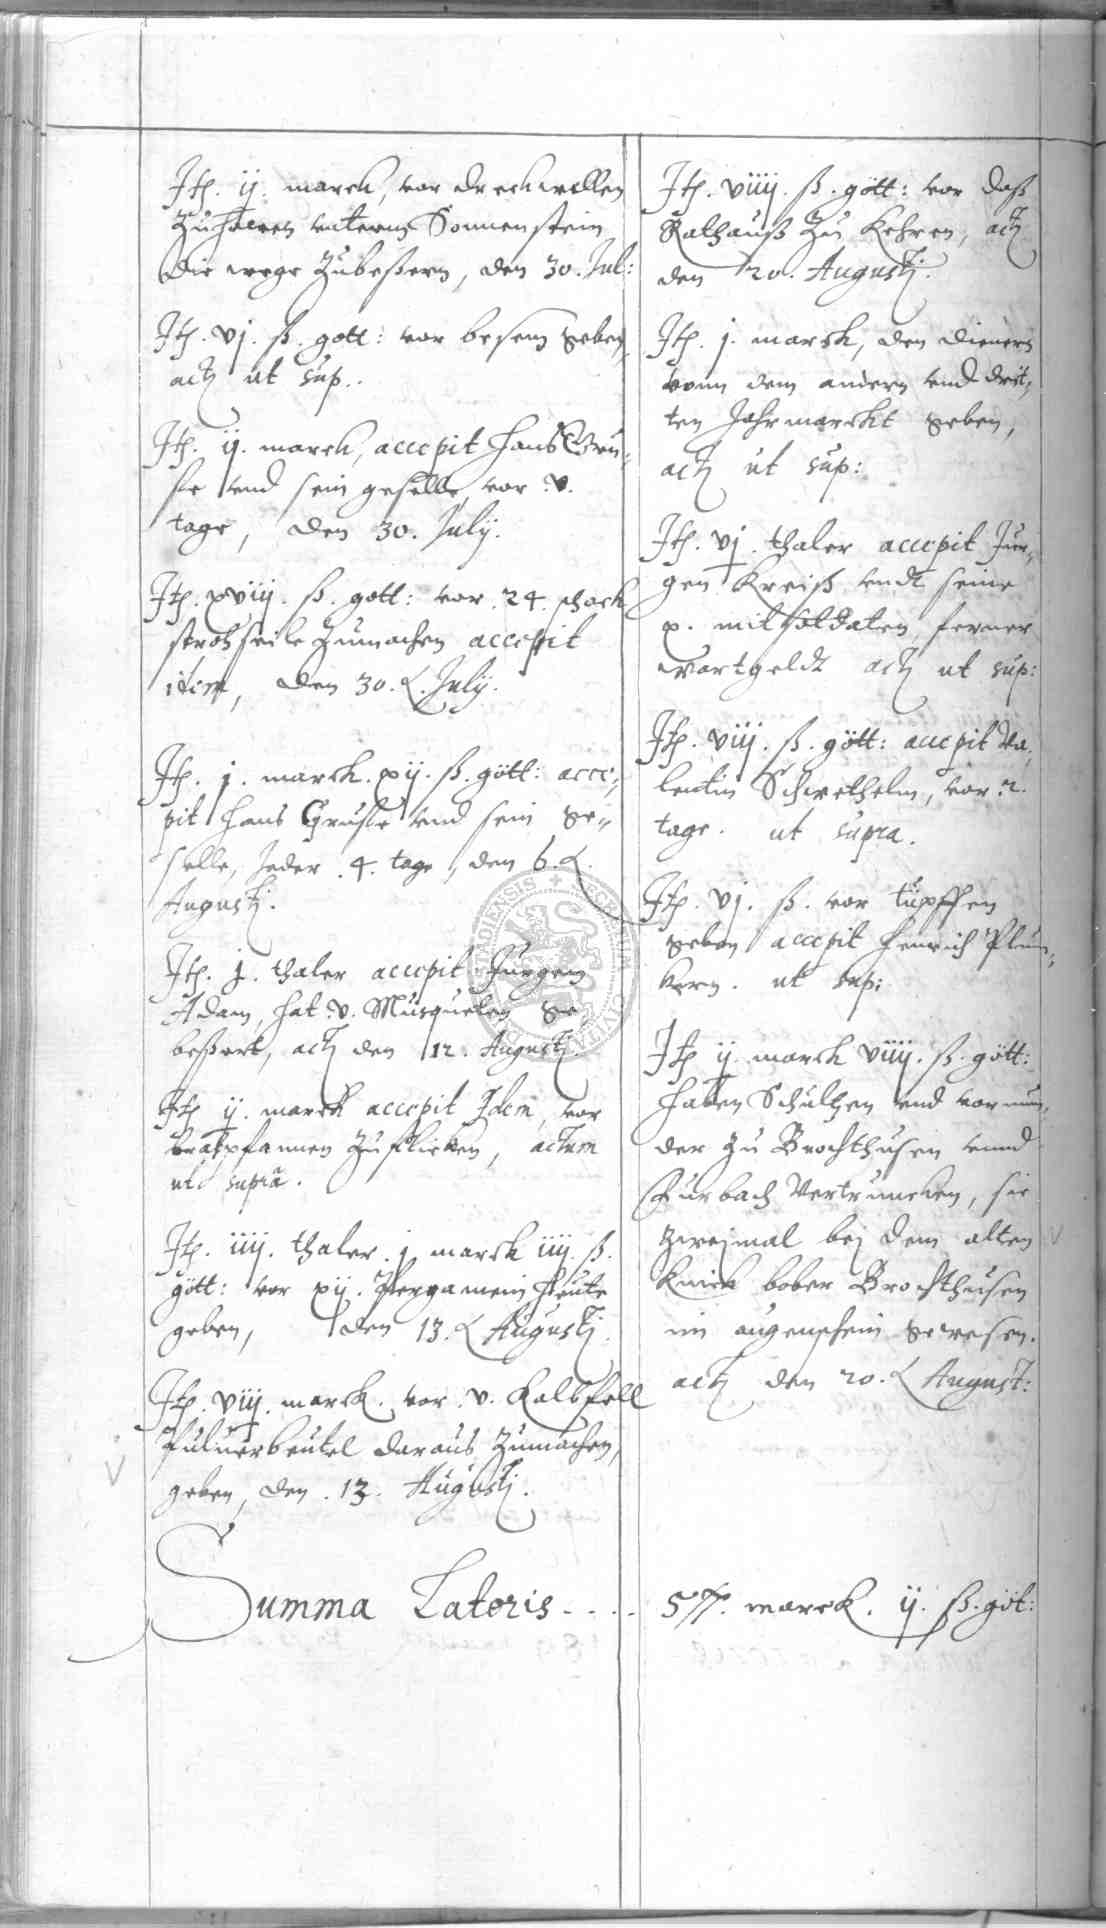 Itp. ij. marck, vor drechwellen
Zuhawen unterm Sonnenstein
die wege Zubeßern, den 30. Jul:
Itp. vj. ß. gott: vor besem geben,
actj ut sup..
Itp. ij. marck, accepit Hans Gru-
ße und sein geselle, vor .v.
tage, den 30. Julij.
Itp. xviij. ß. gott: vor .24. schock
strohseile Zumachen accepit
idem, den 30. Julij.
Itp. j. marck. xij. ß. gött: acce-
pit Hans Gruße und sein ge-
selle, Jeder .4. tage, den 6.
Augustj.
Itp. j. thaler accepit Jurgen
Adam, hat .v. Musqueten ge-
beßert, actj den 12. Augustj.
Itp ij. marck accepit Idem, vor
bratpfannen Zuflicken, actum
ut supra.
Itp. iiij. thaler. j. marck iiij. ß.
gött: vor xij. Pergamein heute
geben, den 13. Augustj.
Itp. viij. marck. vor .v. Kalbfell
Puluerbeutel daraus Zumachen,
geben, den .13. Augustj.
Summa Lateris - - - -
Itp. viiij. ß. gött: vor daß
Rathauß Zu Kehren, actj
den 20. Augustj.
Itp. j. marck, den dienern
vonn dem andern und drit-
ten Jahrmarckt geben,
actj ut sup:
Itp. vj. thaler accepit Jur-
gen Kreiß undt seine
x. mitsoldaten, ferner
wartgeldt actj ut sup:
Itp. viij. ß. gött: accepit Va-
lentin Schwethelm, vor .2.
tage. ut supra.
Itp. vj. ß. vor tüpffen
geben accepit Henrich Plum-
kern. ut sup:
Itp ij. marck viiij. ß. gött:
haben Schultzen und vormun-
der zu Brochthusen unnd
Furbach Vertruncken, sie
zweimal bej dem alten
Knick bober Brochthusen
im augenschein gewesen.
actj den 20. August:
57. marck. ij. ß. göt: